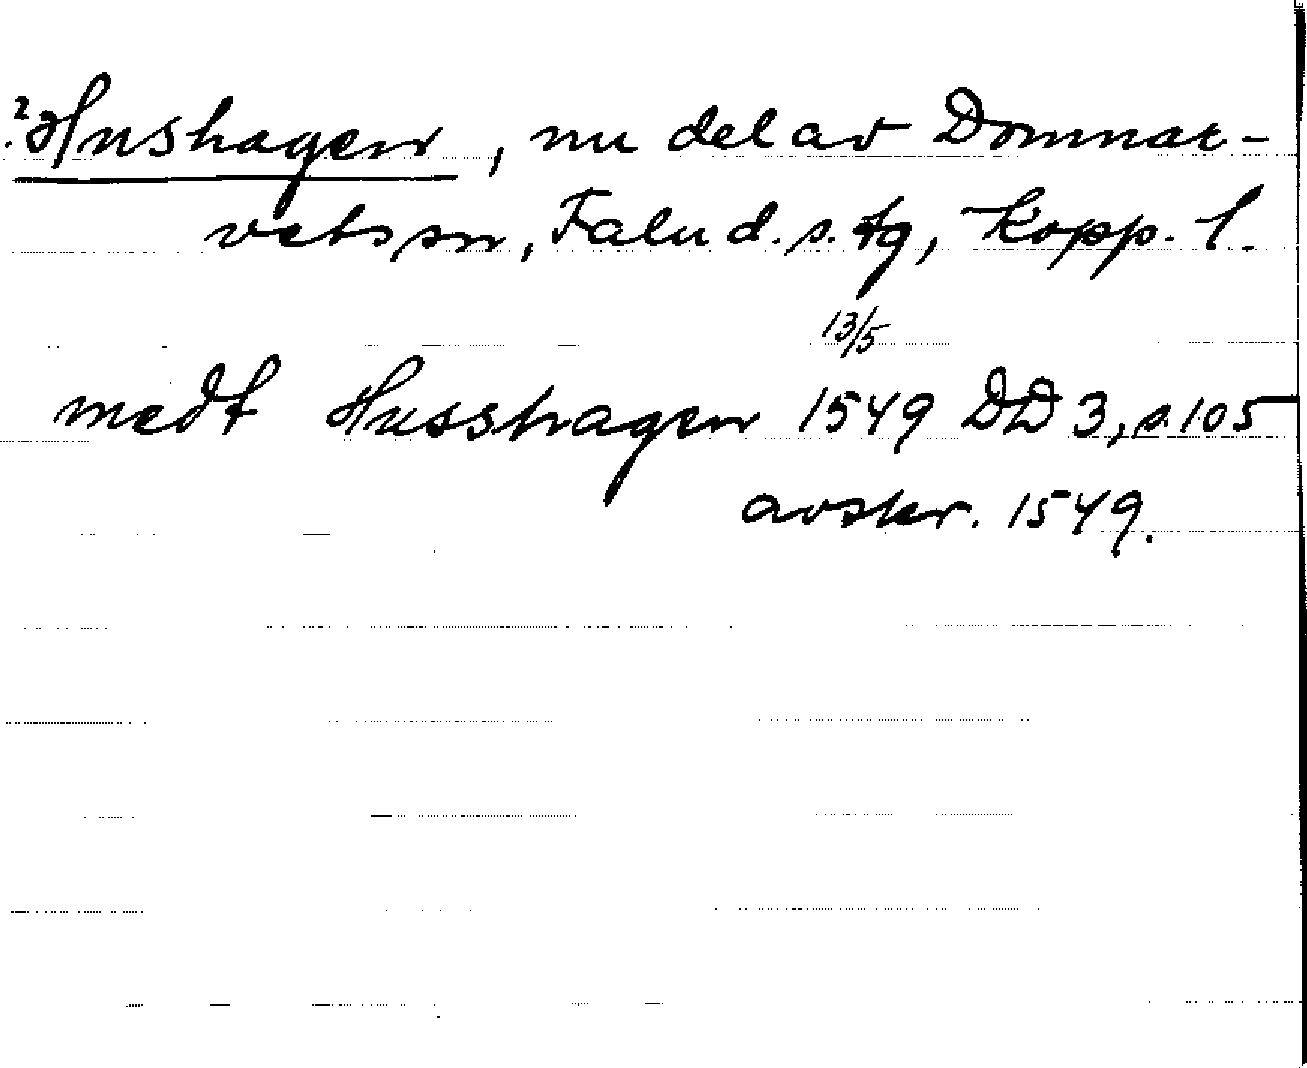 ?Hushagen, nu del av Domnar-
vets sn, Falu d. s. tg, Kopp. l.
13/5
medt Husshagen 1549 DD 3, s. 105
avskr. 1549.